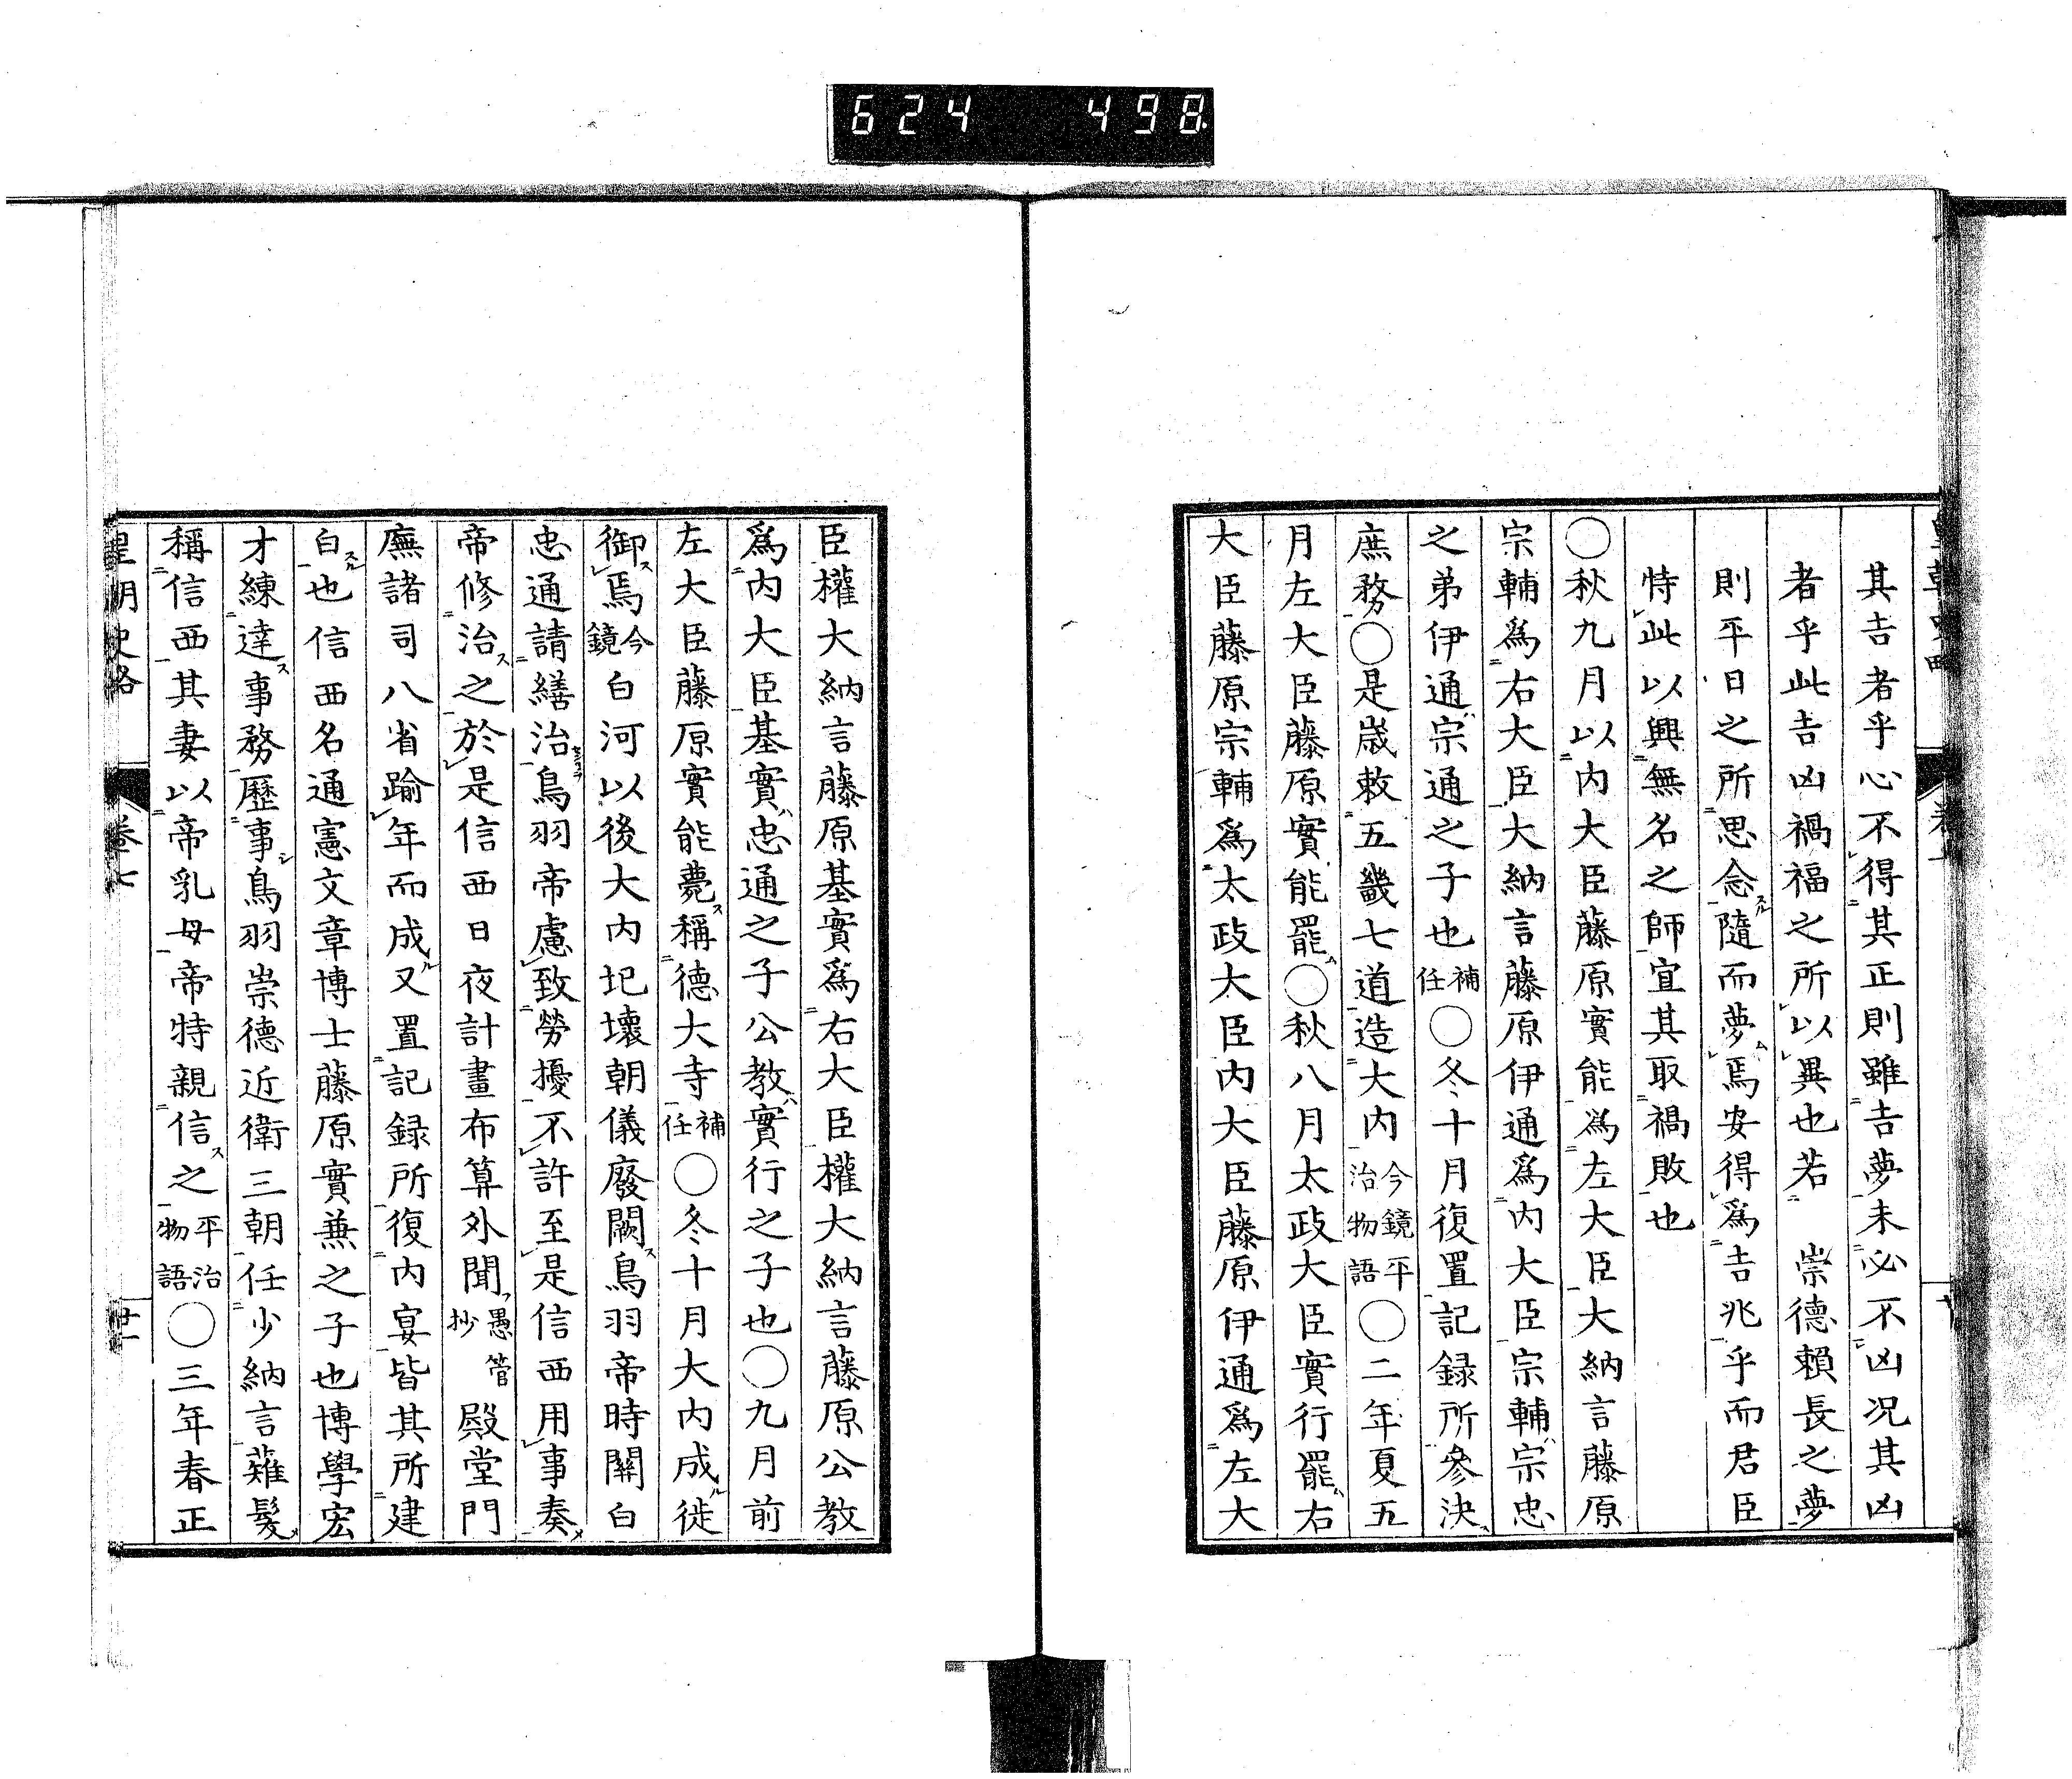 624 498
其吉者乎心不得其正則雖吉夢未必不凶況其凶
者乎此吉凶禍福之所以異也若 崇德賴長之夢
則平日之所思念隨而夢焉安得爲吉兆乎而君臣
恃此以興無名之師宜其取禍敗也
〇秋九月以內大臣藤原實能爲左大臣大納言藤原
宗輔爲右大臣大納言藤原伊通爲內大臣宗輔宗忠
之弟伊通宗通之子也補任〇冬十月復置記録所參決
庶務〇是歲敕五畿七道造大內今鏡平治物語〇二年夏五
月左大臣藤原實能罷〇秋八月太政大臣實行罷右
大臣藤原宗輔爲太政大臣內大臣藤原伊通爲左大
臣權大納言藤原基實爲右大臣權大納言藤原公教
爲內大臣基實忠通之子公教實行之子也〇九月前
左大臣藤原實能薨稱德大寺補任〇冬十月大內成徙
御焉今鏡白河以後大內圮壞朝儀廢闕鳥羽帝時關白
忠通請繕治鳥羽帝慮致勞擾不許至是信西用事奏
帝修治之於是信西日夜計畫布算外聞愚管抄殿堂門
廡諸司八省踰年而成又置記録所復內宴皆其所建
白也信西名通憲文章博士藤原實兼之子也博學宏
才練達事務歷事鳥羽崇德近衛三朝任少納言薙髮
稱信西其妻以帝乳母帝特親信之平治物語〇三年春正
皇朝史略 卷七 廿一